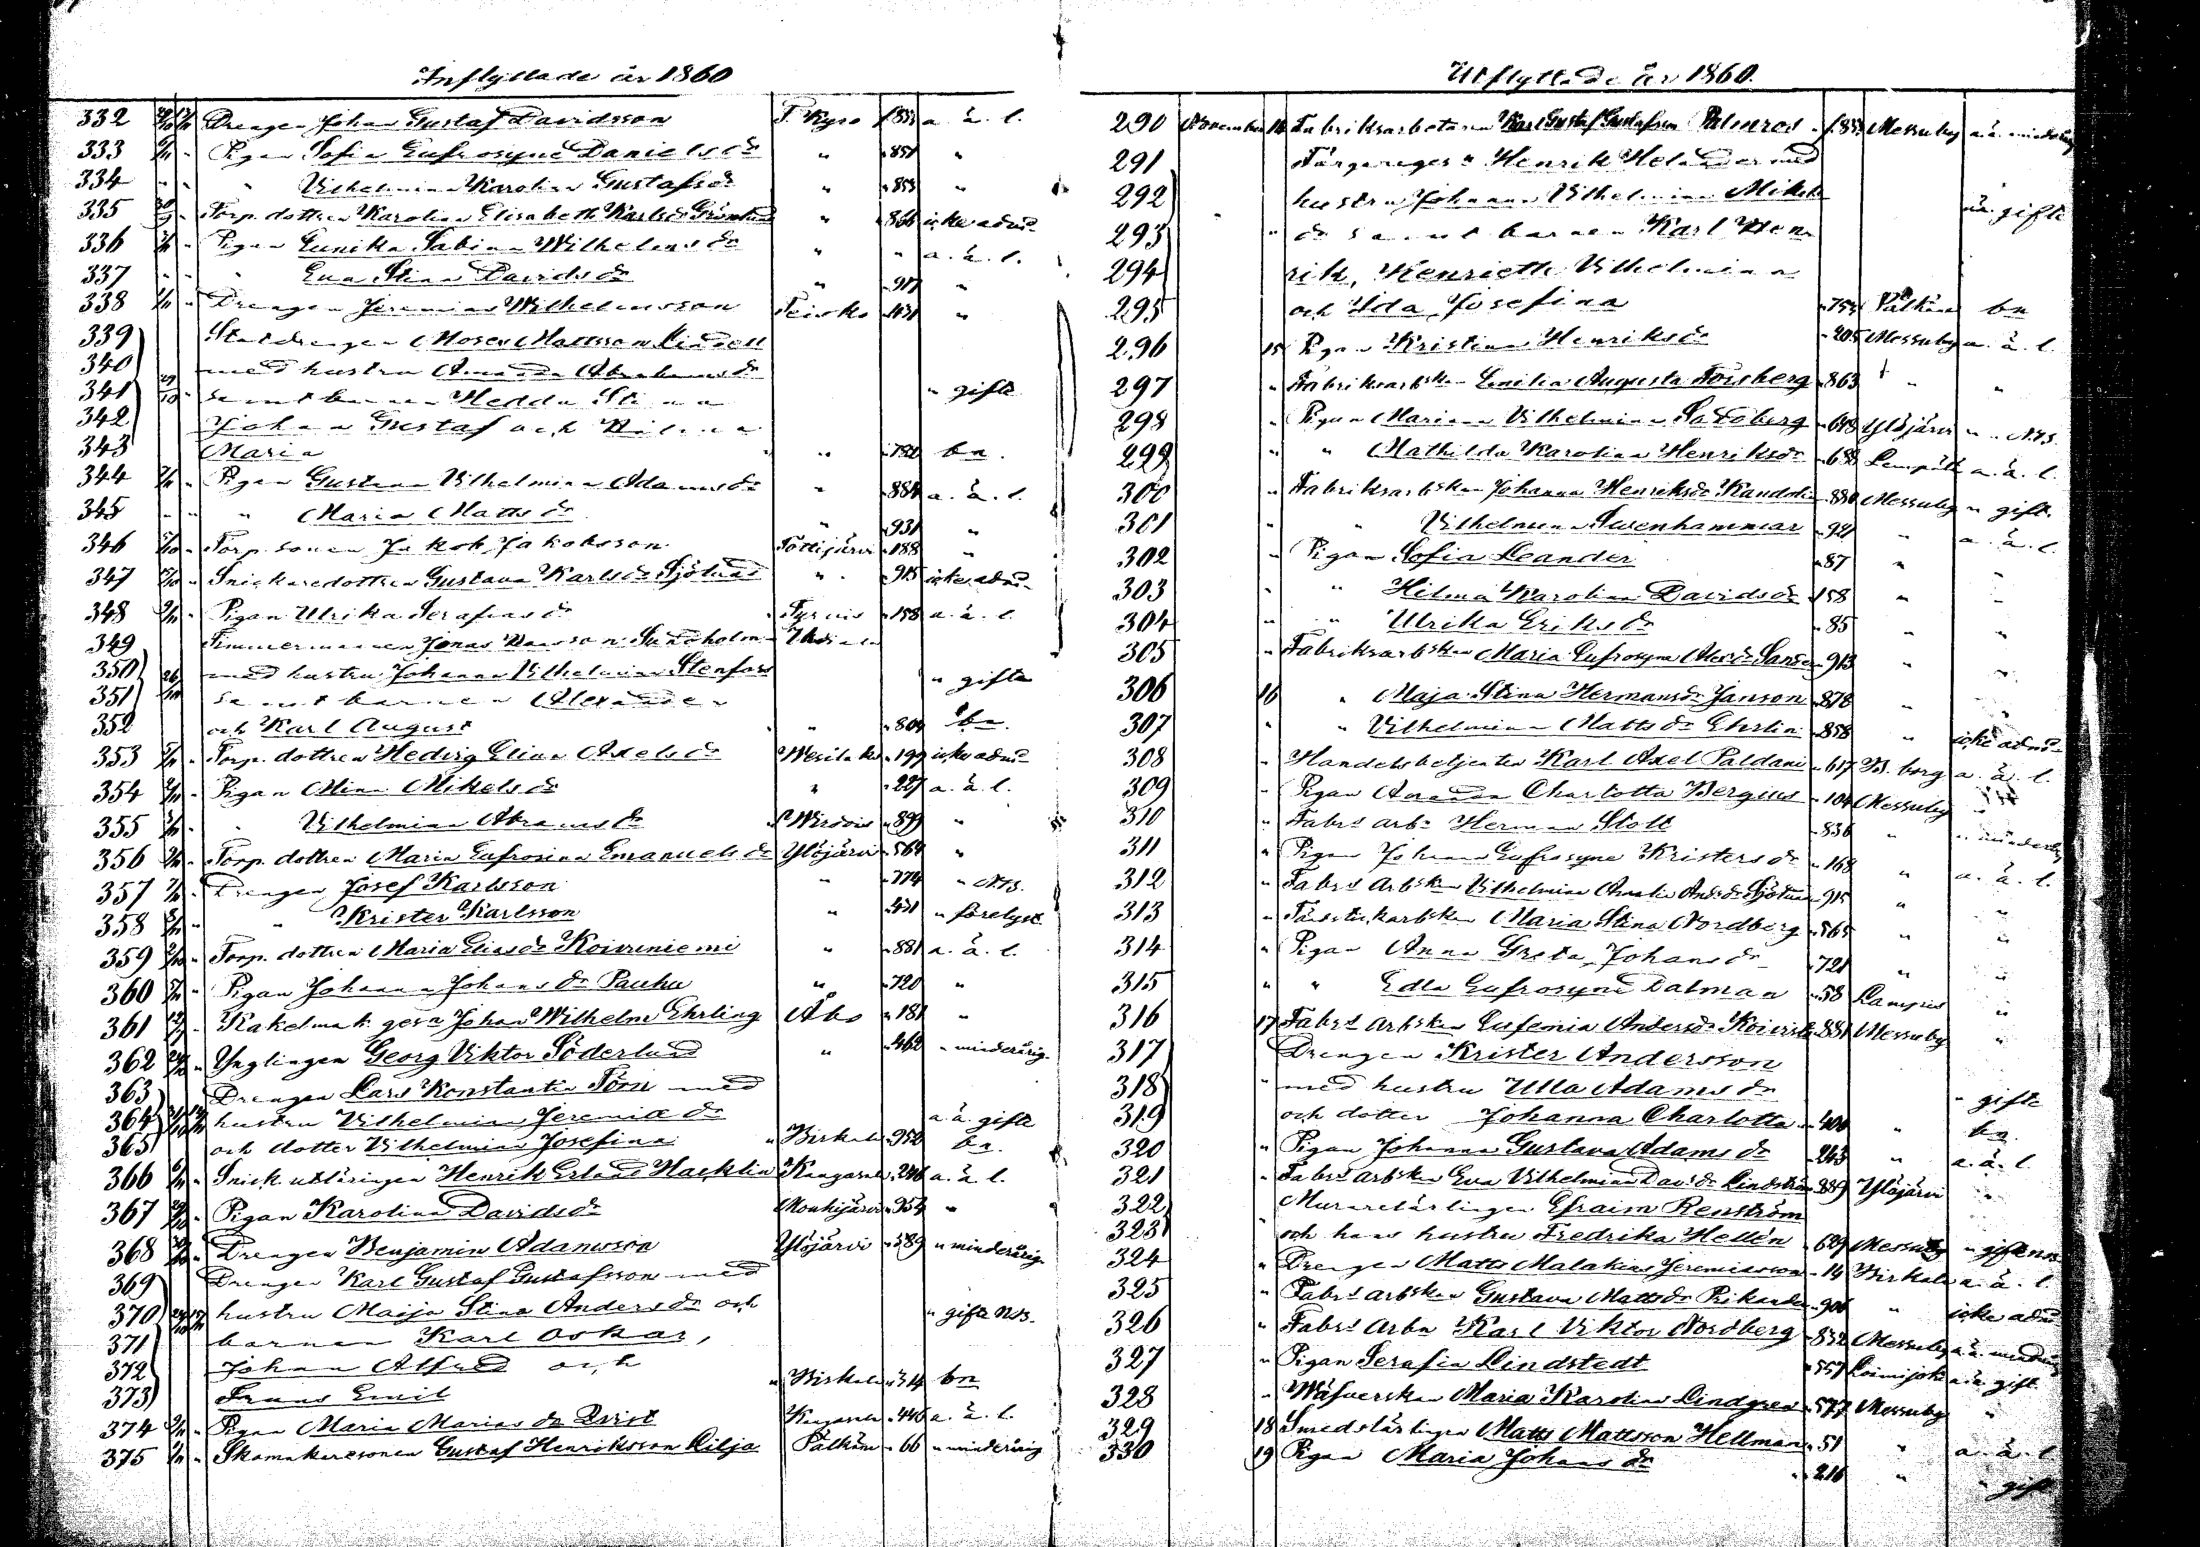 Inflyttade år 1860
332 Drengen Johan Gustaf Davidsson T. Kyro f. 853 a. ä. l.
333 Pigan Sofia Eufrosyne Danielsdr " " 851 "
334 " Vilhelmina Karolina Gustafsdr " " 853 "
335 Torp. dottren Karolina Elisabeth Karlsdr Grönlund " " 866 icke adm.
336 Pigan Eunika Sabina Wilhelmsdr " " a. ä. l.
337 " Eva Stina Davidsdr " " 917 "
338 Drengen Jeremias Wilhelmsson Teisko " 431 "
339 Statdrengen Moses Mattsson Lindell
340 med hustru Amanda Abrahamsdr
341 samt barnen Hedda Stina " gifte
342 Johan Gustaf och Wilma
343 Maria " " 752 bn.
344 Pigan Gustava Vilhelmina Adamsdr " " 884 a. ä. l.
345 " Maria Mattsdr " " 931 "
346 Torp. sonen Jakob Jakobsson Tottijärvi " 188 "
347 Snickaredottren Gustava Karlsdr Sjölund " " 915 icke adm.
348 Pigan Ulrika Serafiasdr Tyrvis " 158 a. ä. l.
349 Timmermannen Jonas Hansson Sundholm
350 med hustru Johanna Vilhelmina Stenfors " gifte
351 samt barnen Alexander
352 och Karl August " " 804 bn.
353 Torp. dottren Hedvig Elina Axelsdr Wesilaks " 199 icke adm.
354 Pigan Mina Mikelsdr " " 227 a. ä. l.
355 " Vilhelmina Abramsdr Wirdois " 899 "
356 Torp. dottren Maria Eufrosina Emanuelsdr Ylöjärvi " 564 "
357 Drengen Josef Karlsson " " 774 " NB.
358 " Krister Karlsson " " 431 " förelyst
359 Torp. dottren Maria Eliasdr Koivuniemi " " 881 a. ä. l.
360 Pigan Johanna Johansdr Pauhu " " 720 "
361 Kakelmak. gesn Johan Wilhelm Ehrling Åbo " 181 "
362 Ynglingen Georg Viktor Söderlund " " 462 " minderårig
363 Drengen Lars Konstantin Törn med
364 hustru Vilhelmina Jeremiædr a. ä. gifte
365 och dotter Vilhelmina Josefina Birkala " 952 bn.
366 Snick. utläringen Henrik Erland Hacklin Kangasala " 246 a. ä. l.
367 Pigan Karolina Davidsdr Mouhijärvi " 954 "
368 Drengen Benjamin Adamsson Ylöjärvi " 589 " minderårig
369 Drengen Karl Gustaf Gustafsson med
370 hustru Maija Stina Andersdr och " gifte NB.
371 barnen Karl Oskar,
372 Johan Alfred och
373 Frans Emil Birkala " 314 bn
374 Pigan Maria Mariasdr Qvist Kangasala " 446 a. ä. l.
375 Skomakaresonen Gustaf Henriksson Lilja Pälkäne " 66 " minderårig
Utflyttade år 1860.
290 November 14 Fabriksarbetaren Karl Gustaf Gustafsson Palmros f. 853 Messuby a. ä. minderårig
291 Färgaregesn Henrik Helander med
292 hustru Johanna Vilhelmina Mikels a. ä. gifte
293 dr samt barnen Karl Hen
294 rik, Henriette Vilhelmina
295 och Ida Josefina " 754 Pälkäne bn
296 15 Pigan Kristina Henriksdr " 205 Messuby a. ä. l.
297 " Fabriksarbskan Emilia Augusta Forsberg " 863 " "
298 " Pigan Mariana Vilhelmina Sandberg " 648 Ylöjärvi " " NB.
299 " " Mathilda Karolina Henriksdr " 658 Lempälä a. ä. l.
300 " Fabriksarbskan Johanna Henriksdr Kandolin " 880 Messuby " gift.
301 " " Vilhelmina Svenhammar " 921 " a. ä. l.
302 " Pigan Sofia Leander " 87 " "
303 " " Hilma Karolina Davidsdr " 158 " "
304 " " Ulrika Eriksdr " 85 " "
305 " Fabriksarbskan Maria Eufrosyne " 913 " "
306 16 " Maja Stina Hermansdr Janson " 878 " "
307 " " Vilhelmina Mattsdr Ehrlin " 858 " icke adm.
308 " Handelsbetjenten Karl Axel Paldani " 617 B. borg a. ä. l.
309 " Pigan Amanda Charlotta Bergius " 104 Messuby "
310 " Fabrs arbn Herman Stolt " 836 " " minderårig
311 " Pigan Johanna Eufrosyne Kristersdr " 168 " a. ä. l.
312 " Fabrs arbskan Vilhelmina Amalia Andsdr Sjölund " 915 " "
313 " Maria Stina Nordberg " 565 " "
314 " Pigan Anna Greta Johansdr " 721 " "
315 " " Edla Eufrosyne Dalman " 58 Lampis "
316 17 Fabrs arbskan Eufemia Andersdr Koivisto " 881 Messuby "
317 Drengen Krister Andersson
318 " med hustru Ulla Adamsdr " gifte
319 och dotter Johanna Charlotta " 400 " bn.
320 " Pigan Johanna Gustava Adamsdr " 243 " a. ä. l.
321 " Fabrs arbskan Eva Vilhelmina Davsdr Lindström " 889 Ylöjärvi "
322 Murarelärlingen Efraim Renström
323 " och hans hustru Fredrika Hellén " 629 Messuby " gifte NB
324 " Drengen Matts Malakias Jeremiasson " 14 Birkala a. ä. l
325 " Fabrs arbskan Gustava Mattsdr Rikander " 906 " icke adm
326 " Fabrs arbn Karl Viktor Nordberg " 832 Messuby a. ä. minderårig
327 " Pigan Serafia Lindstedt " 557 Loimijoki a. ä. gift.
328 " Wäfverskan Maria Karolina Lindgren " 577 Messuby "
329 18 Smedslärlingen Matts Mattsson Hellman " 51 " a. ä. l
330 19 Pigan Maria Johansdr " 216 " " gift